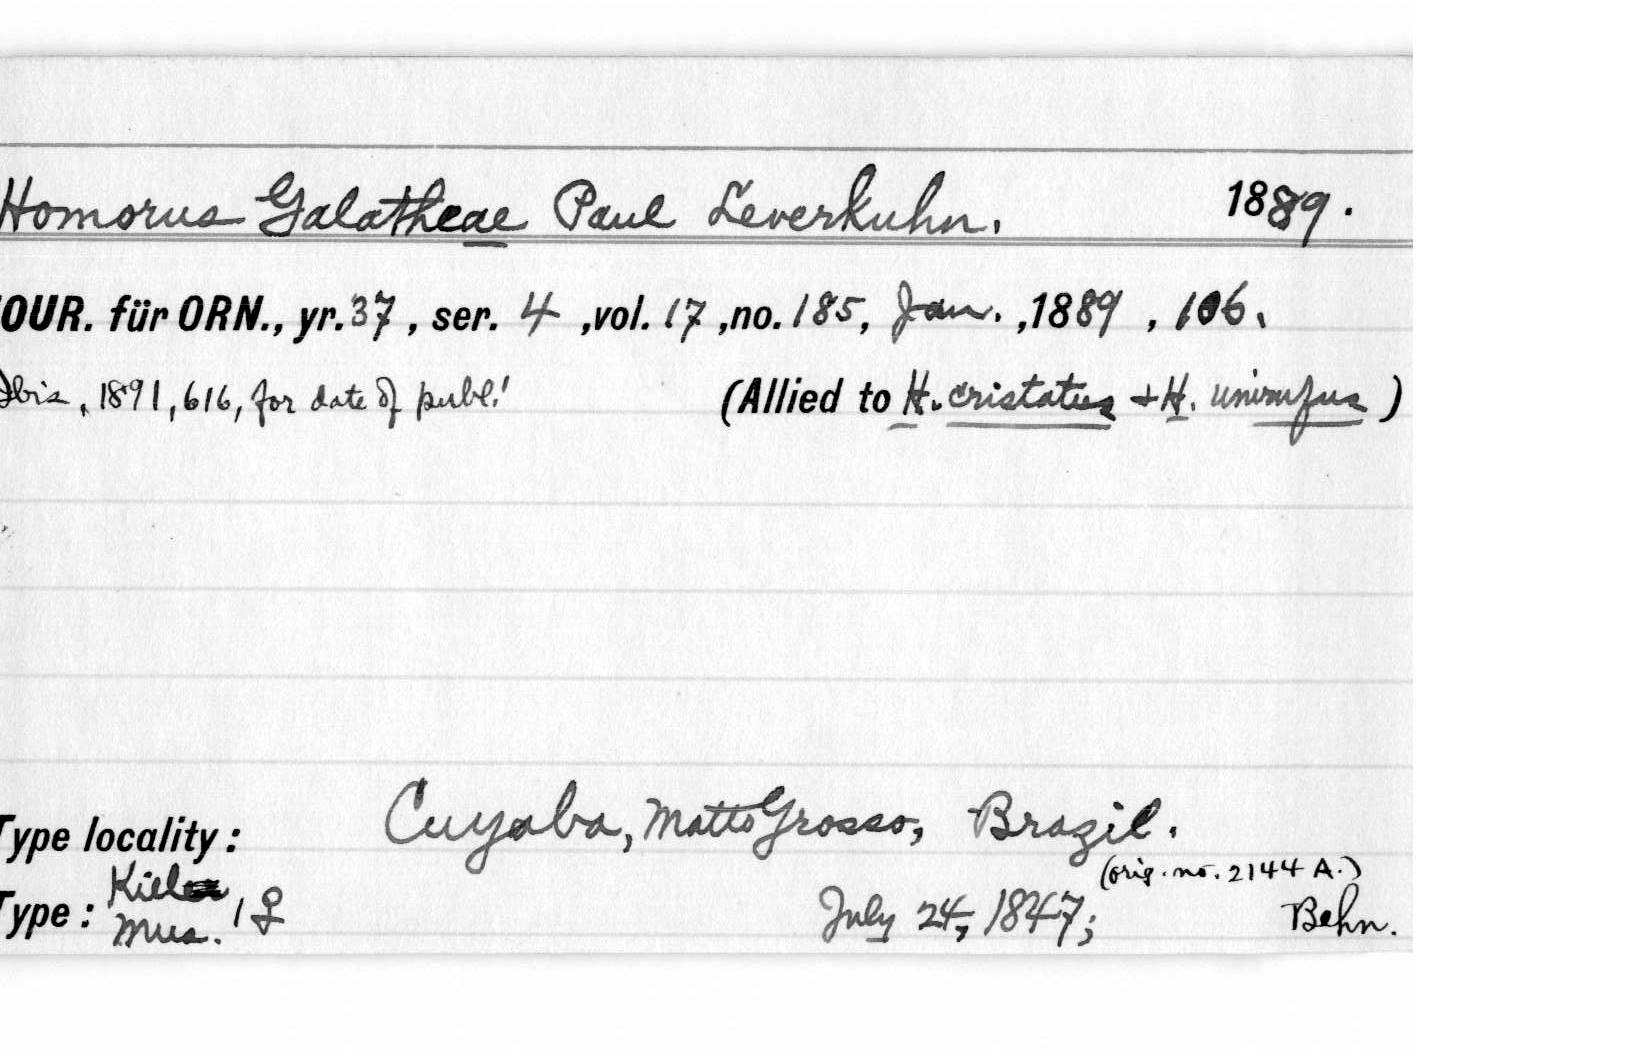 Homorus Galatheae Paul Leverkuhn. 1889.
OUR. für ORN., yr. 37, ser. 4, vol. 17, no. 185, Jan., 1889, 106.
Ibis, 1891, 616, for date of publ! (Allied to H. cristatus + H. unirufus)
Type locality: Cuyaba, Matto Grosso, Brazil.
(orig. no. 2144 A.)
Type: Kiel Mus. 1 ♀ July 24, 1847; Behn.